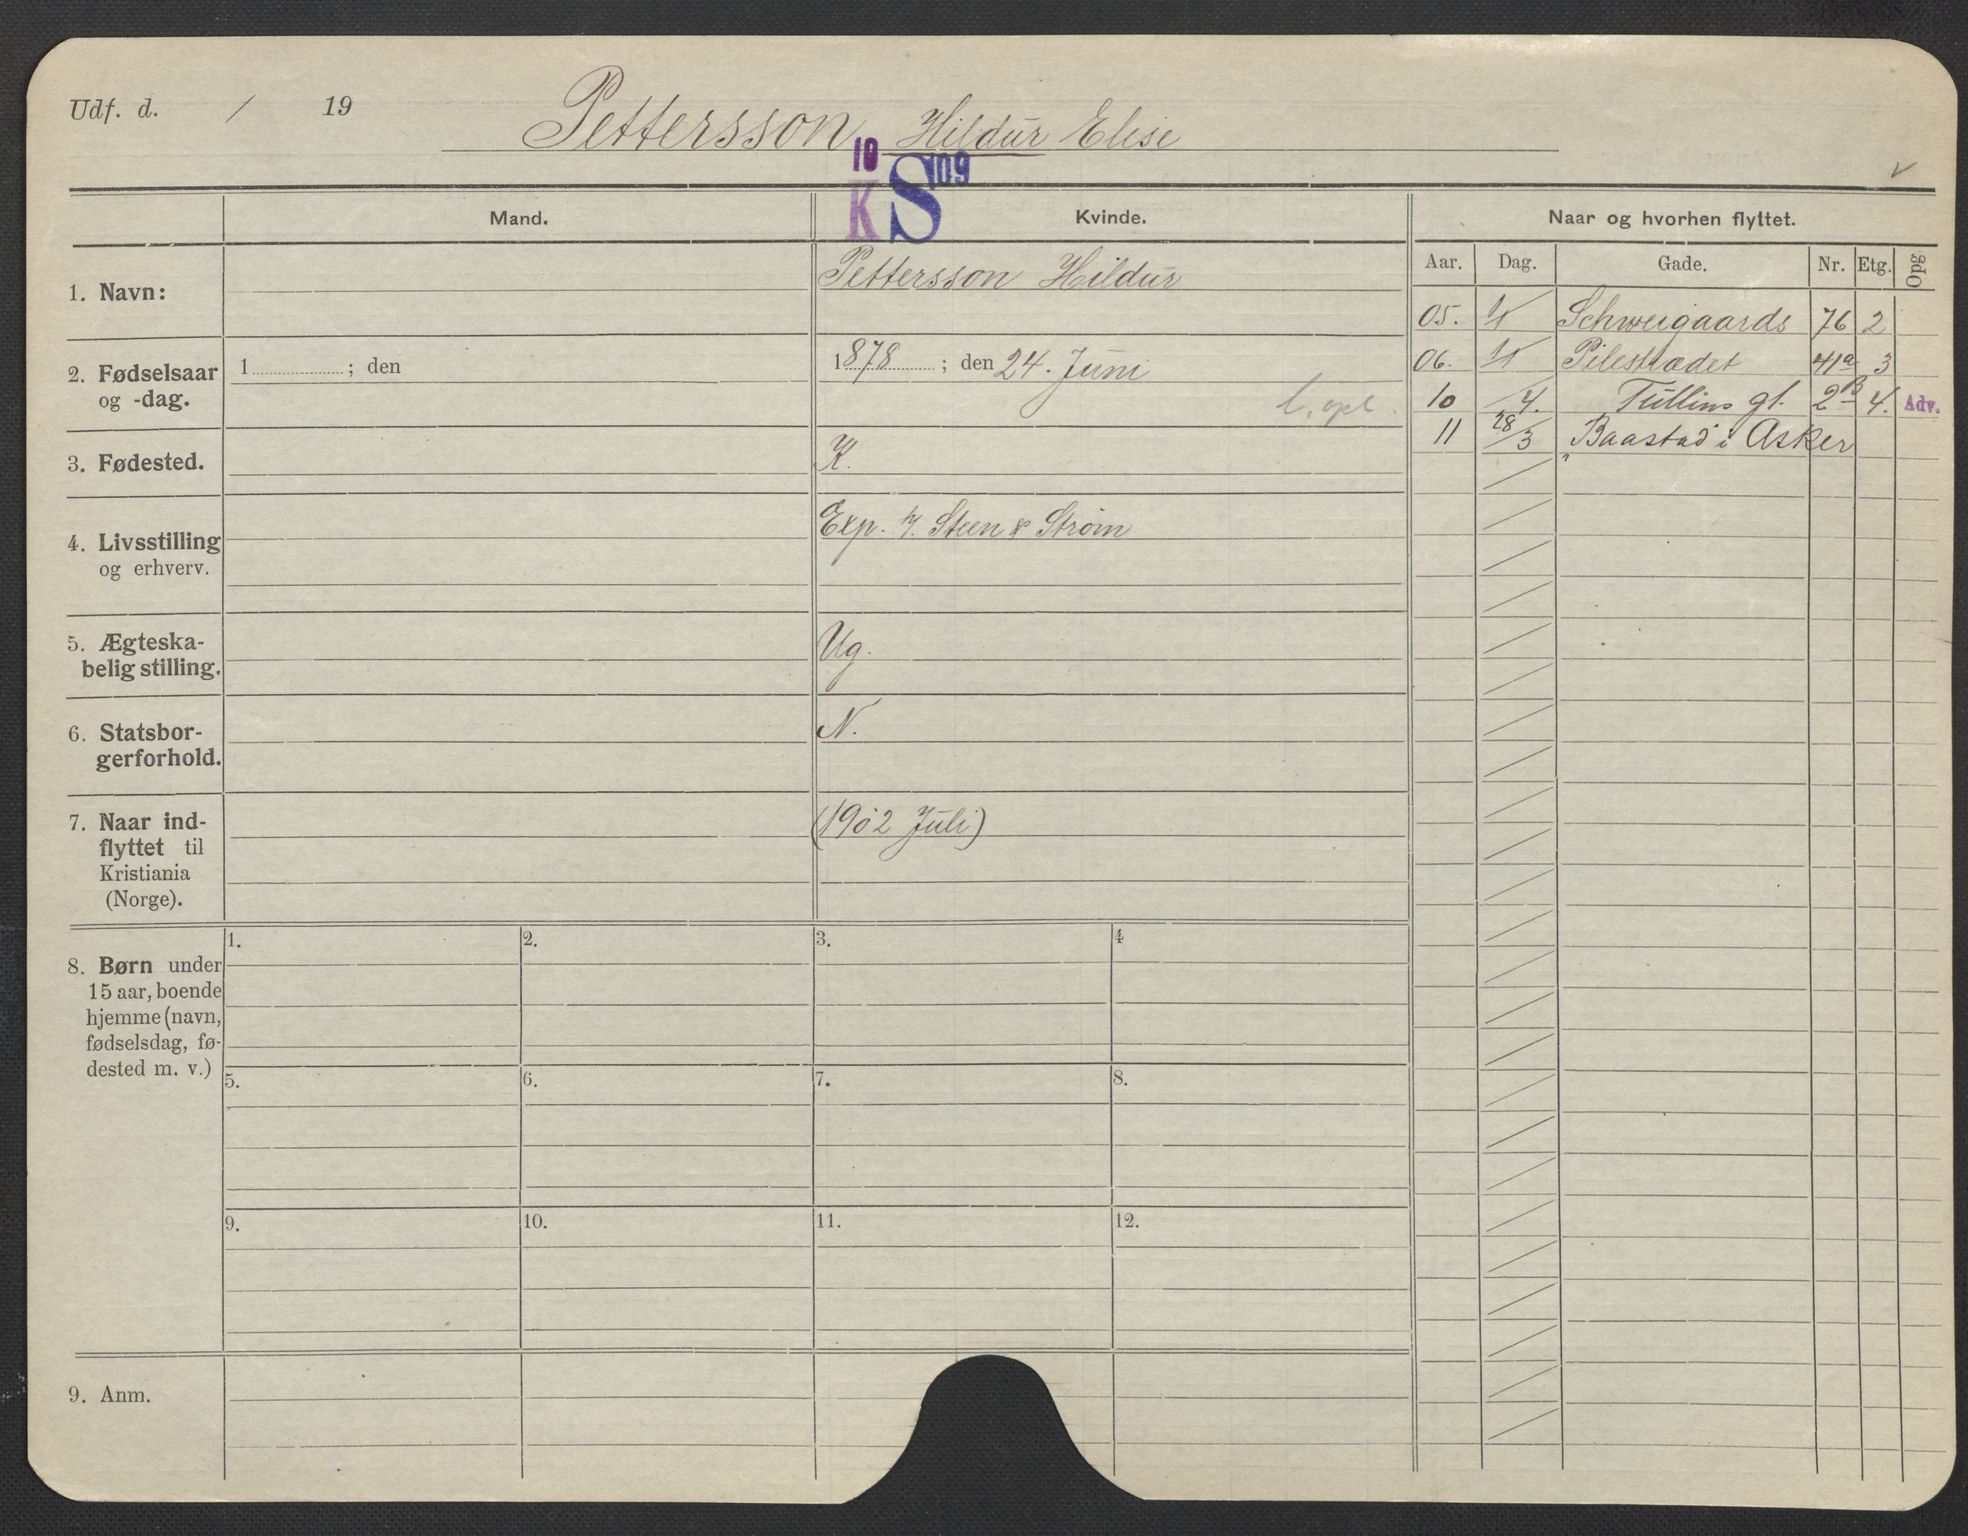 Udf. d. / 19
Pettersson, Hildur Elise
10 K S 109
Mand.
Kvinde.
Naar og hvorhen flyttet.
Aar. Dag. Gade. Nr. Etg. Opg
1. Navn:
Pettersson Hildur
05. Schweigaards 76 2
2. Fødselsaar
og -dag.
1 ; den
1878 ; den 24. Juni
06. Pilestrædet 41a 3
10 /4. Tullins gt. 2B 4. Adv.
11 28/3 Baastad i Asker
3. Fødested.
K.
4. Livsstilling
og erhverv.
Exp. Steen & Strøm
5. Ægteska-
belig stilling.
Ug.
6. Statsbor-
gerforhold.
N.
7. Naar ind-
flyttet til
Kristiania
(Norge).
(1902 Juli)
8. Børn under
15 aar, boende
hjemme (navn,
fødselsdag, fø-
dested m. v.)
1. 2. 3. 4
5. 6. 7. 8.
9. 10. 11. 12.
9. Anm.